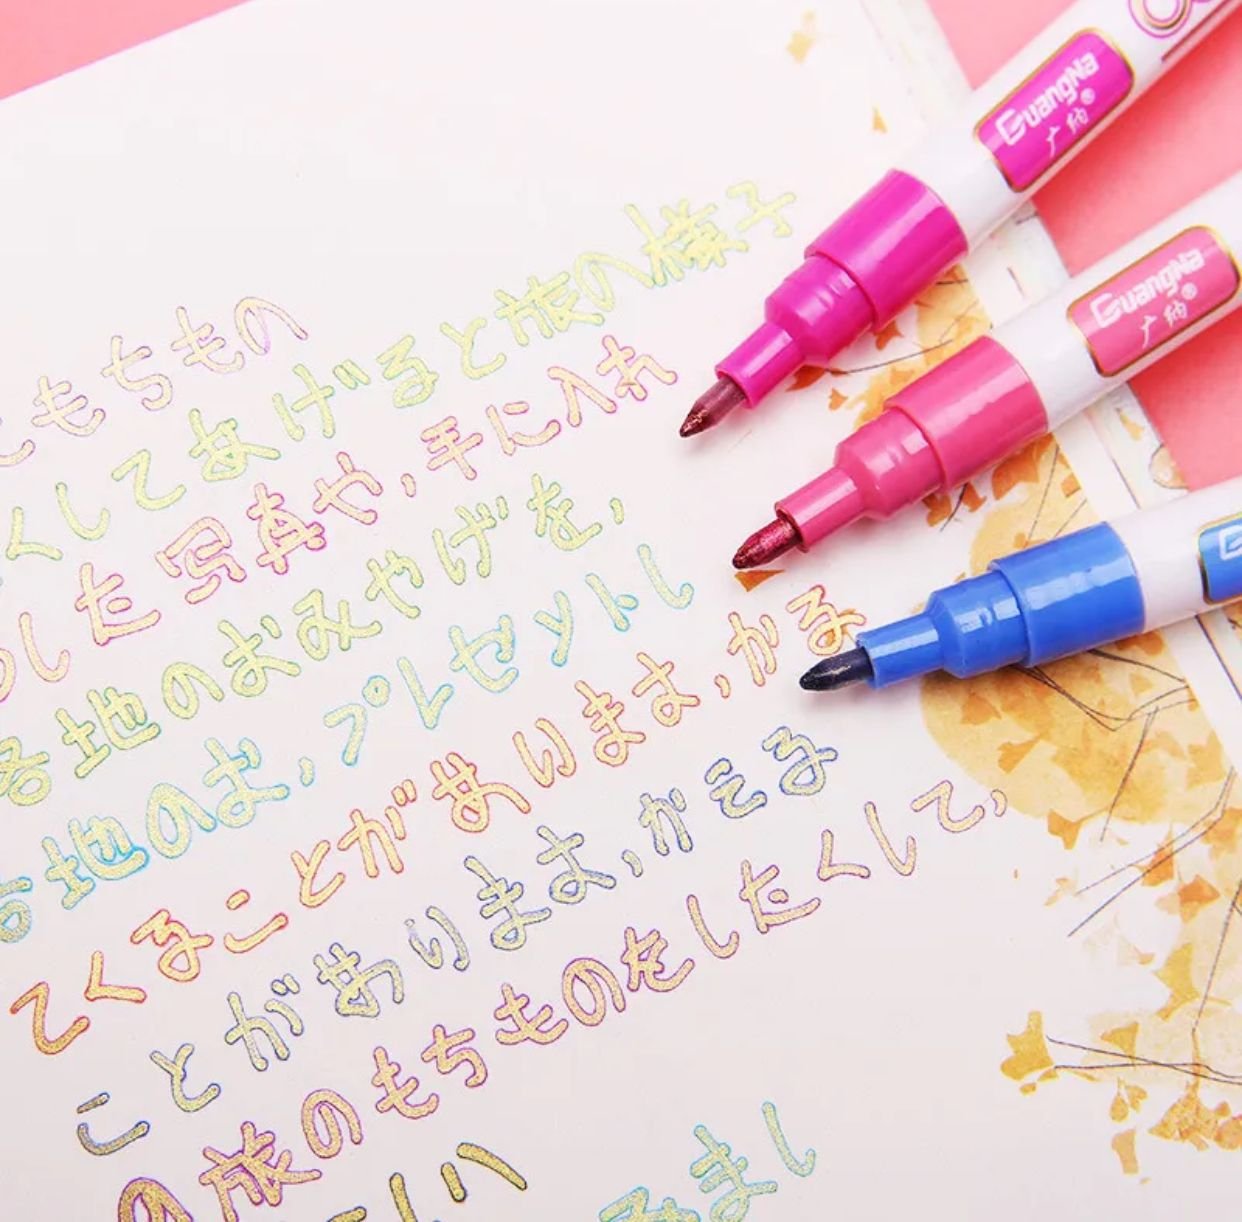 もちもの
くしてあげると旅の様子
した写真や,手に入れ
各地のおみやげを,
各地のは,プレセットし
てくることがあります,かる
ことがあります,かえる
の旅のもちものをしたくして,
みまし
GuangNa®
广纳
GuangNa®
广纳